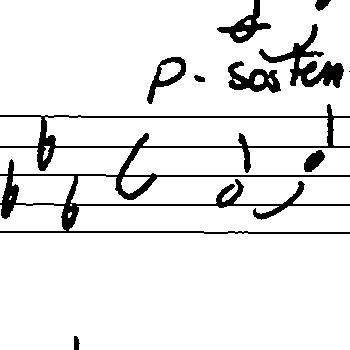 p. sosten